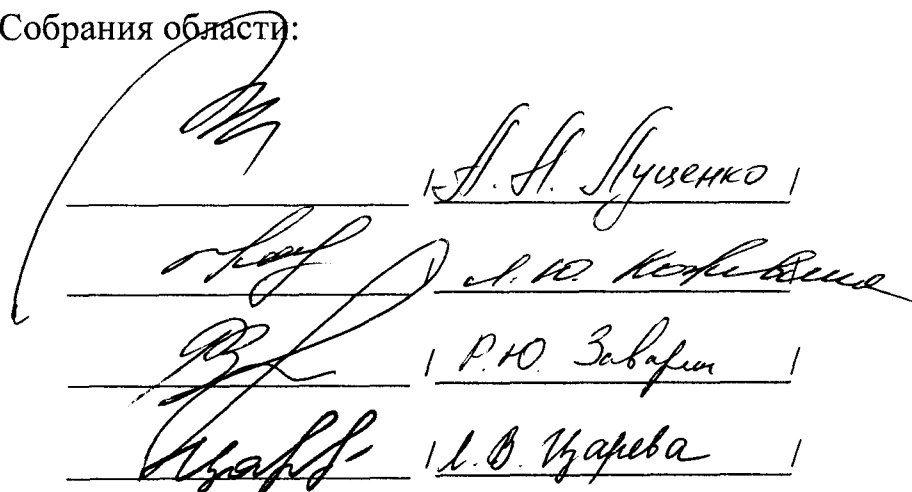 Собрания области:
А. Н. Луценко
Л. Ю. Кожевина
Р. Ю. Заварин
Л. В. Царева